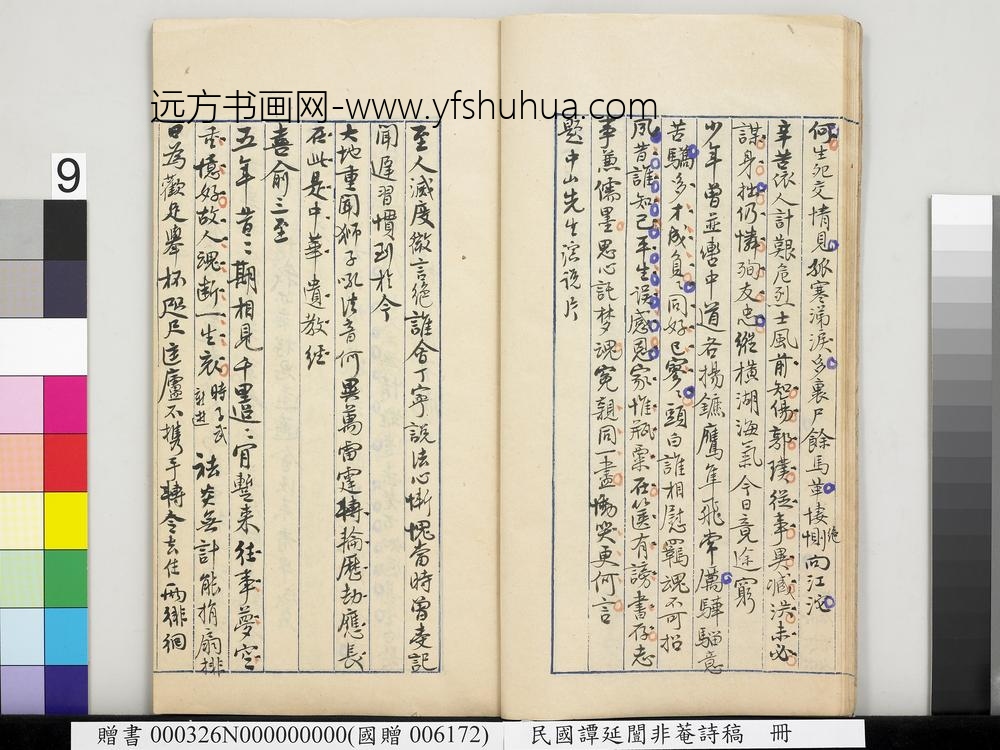 远方书画网-www.yfshuhua.com
9
何生死交情見孤寒涕淚多裹尸餘馬革悽惻絕向江沱
辛苦依人計艱危烈士風前知傷郭璞從事異臧洪未必
謀身拙仍憐殉友忠縱橫湖海氣今日竟途窮
少年曾並轡中道各揚鑣鷹隼飛常厲驊騮意
苦驕多才成負負同好已寥寥頭白誰相慰羈魂不可招
夙昔誰知己平生誤感恩家惟瓶粟石篋有謗書存志
事兼儒墨恩心託梦魂冤親同一盡慟哭更何言
題中山先生演說片
至人滅度微言絕誰會丁寧說法心慚愧當時曾受記
聞遲習慣到於今
大地重聞獅子吼法音何異萬雷霆轉輪歷劫應長
在此是中華遺教經
喜俞三至
五年昔昔期相見千里迢迢肯暫來往事夢空
重憶好故人魂斷一生哀時子武新逝祛炎無計能捐扇排
日為歡足舉杯咫尺蘧廬不攜手轉令去住兩徘徊
贈書 000326N000000000(國贈 006172)
民國譚延闓非菴詩稿 冊